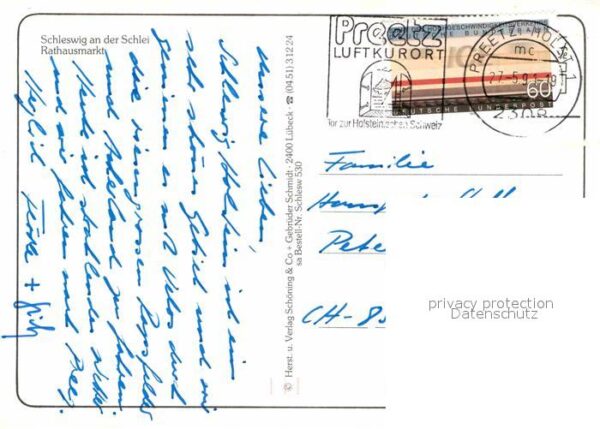 Schleswig an der Schlei
Rathausmarkt
Unsere Lieben,
Schleswig Holstein ist ein
sehr schönes Gebiet und wir
geniessen es mit Velos durch
die riesengrossen Rapsfelder
und Ackerland zu fahren.
Heute ist strahlendes Wetter
und wir fahren nach Preetz.
Herzlich
Herst. u. Verlag Schöning & Co + Gebrüder Schmidt · 2400 Lübeck · ☎ (04 51) 3 12 24
sa Bestell-Nr. Schlesw 530
Preetz
LUFTKURORT
Tor zur Holsteinischen Schweiz
PREETZ, HOLST 1
mc
27.-5.91-19
2308
60
DEUTSCHE BUNDESPOST
Familie
Pete
CH-8
privacy protection
Datenschutz